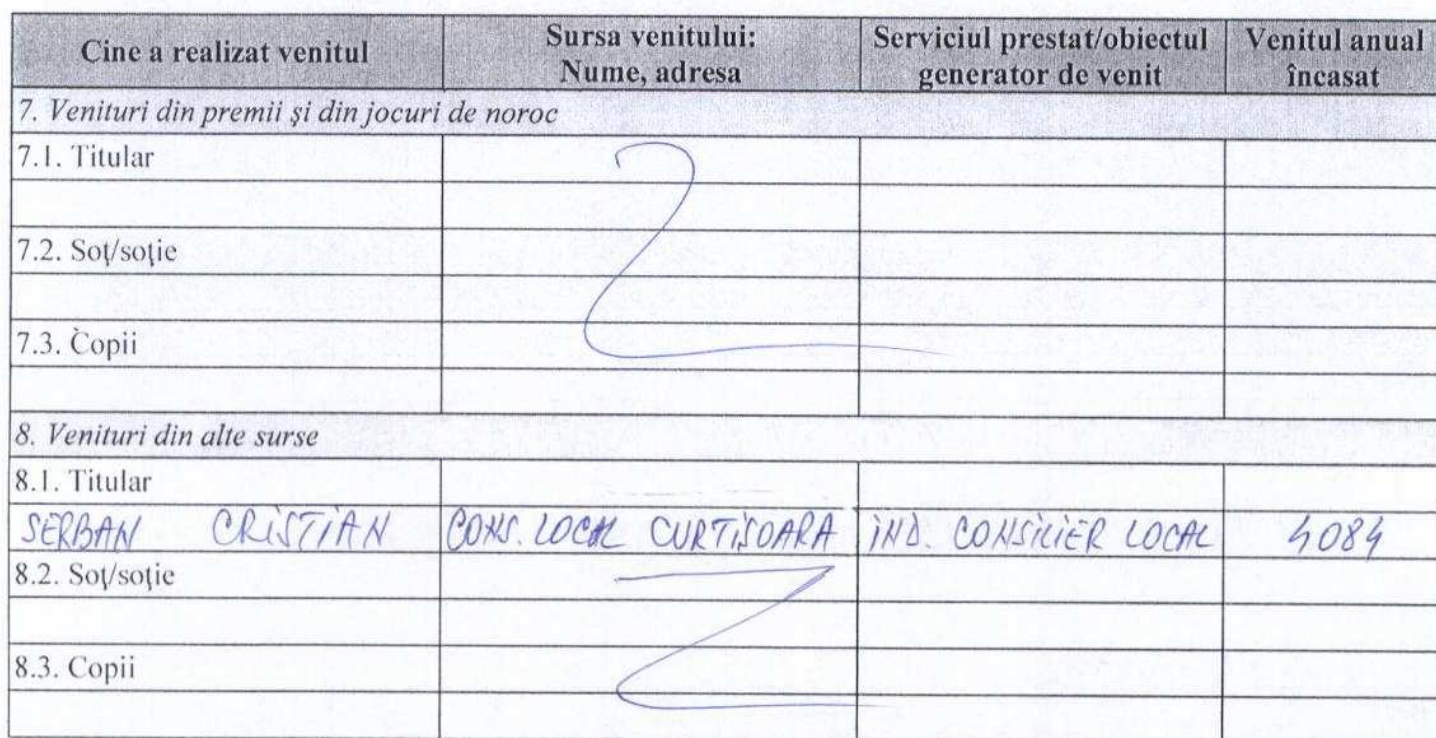 Cine a realizat venitul Sursa venitului: Nume, adresa Serviciul prestat/obiectul generator de venit Venitul anual încasat
7. Venituri din premii şi din jocuri de noroc
7.1. Titular
7.2. Soţ/soţie
7.3. Copii
8. Venituri din alte surse
8.1. Titular
SERBAN CRISTIAN CONS. LOCAL CURTISOARA IND. CONSILIER LOCAL 4084
8.2. Soţ/soţie
8.3. Copii